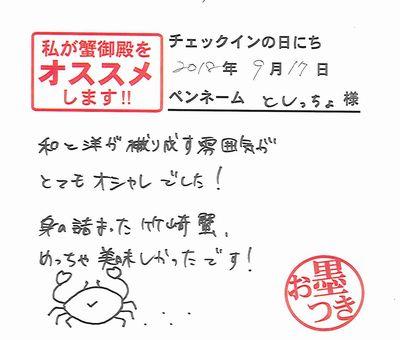 私が蟹御殿を
オススメ
します!!
チェックインの日にち
2018年 9月17日
ペンネーム としっちょ 様
和と洋が織り成す雰囲気が
とてもオシャレでした!
身の詰まった竹崎蟹、
めっちゃ美味しかったです!
...
お墨つき